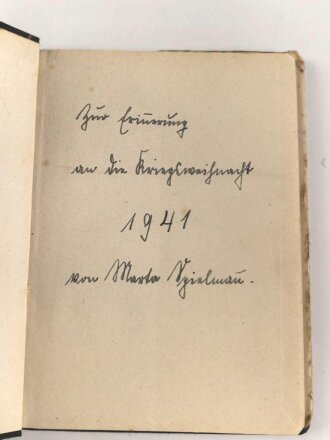 Zur Erinerung
an die Kriegsweihnacht
1941
von Marta Spielman.